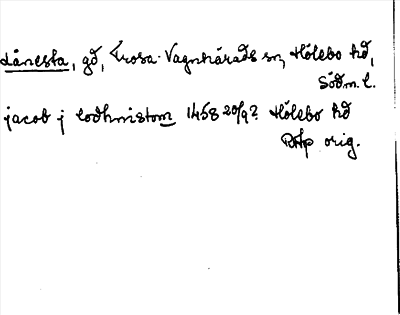 Lånesta, gd, Trosa-Vagnhärads sn, Hölebo hd,
Södm. l.
jacob j lodhnistom 1458 20/9? Hölebo hd
RAp orig.